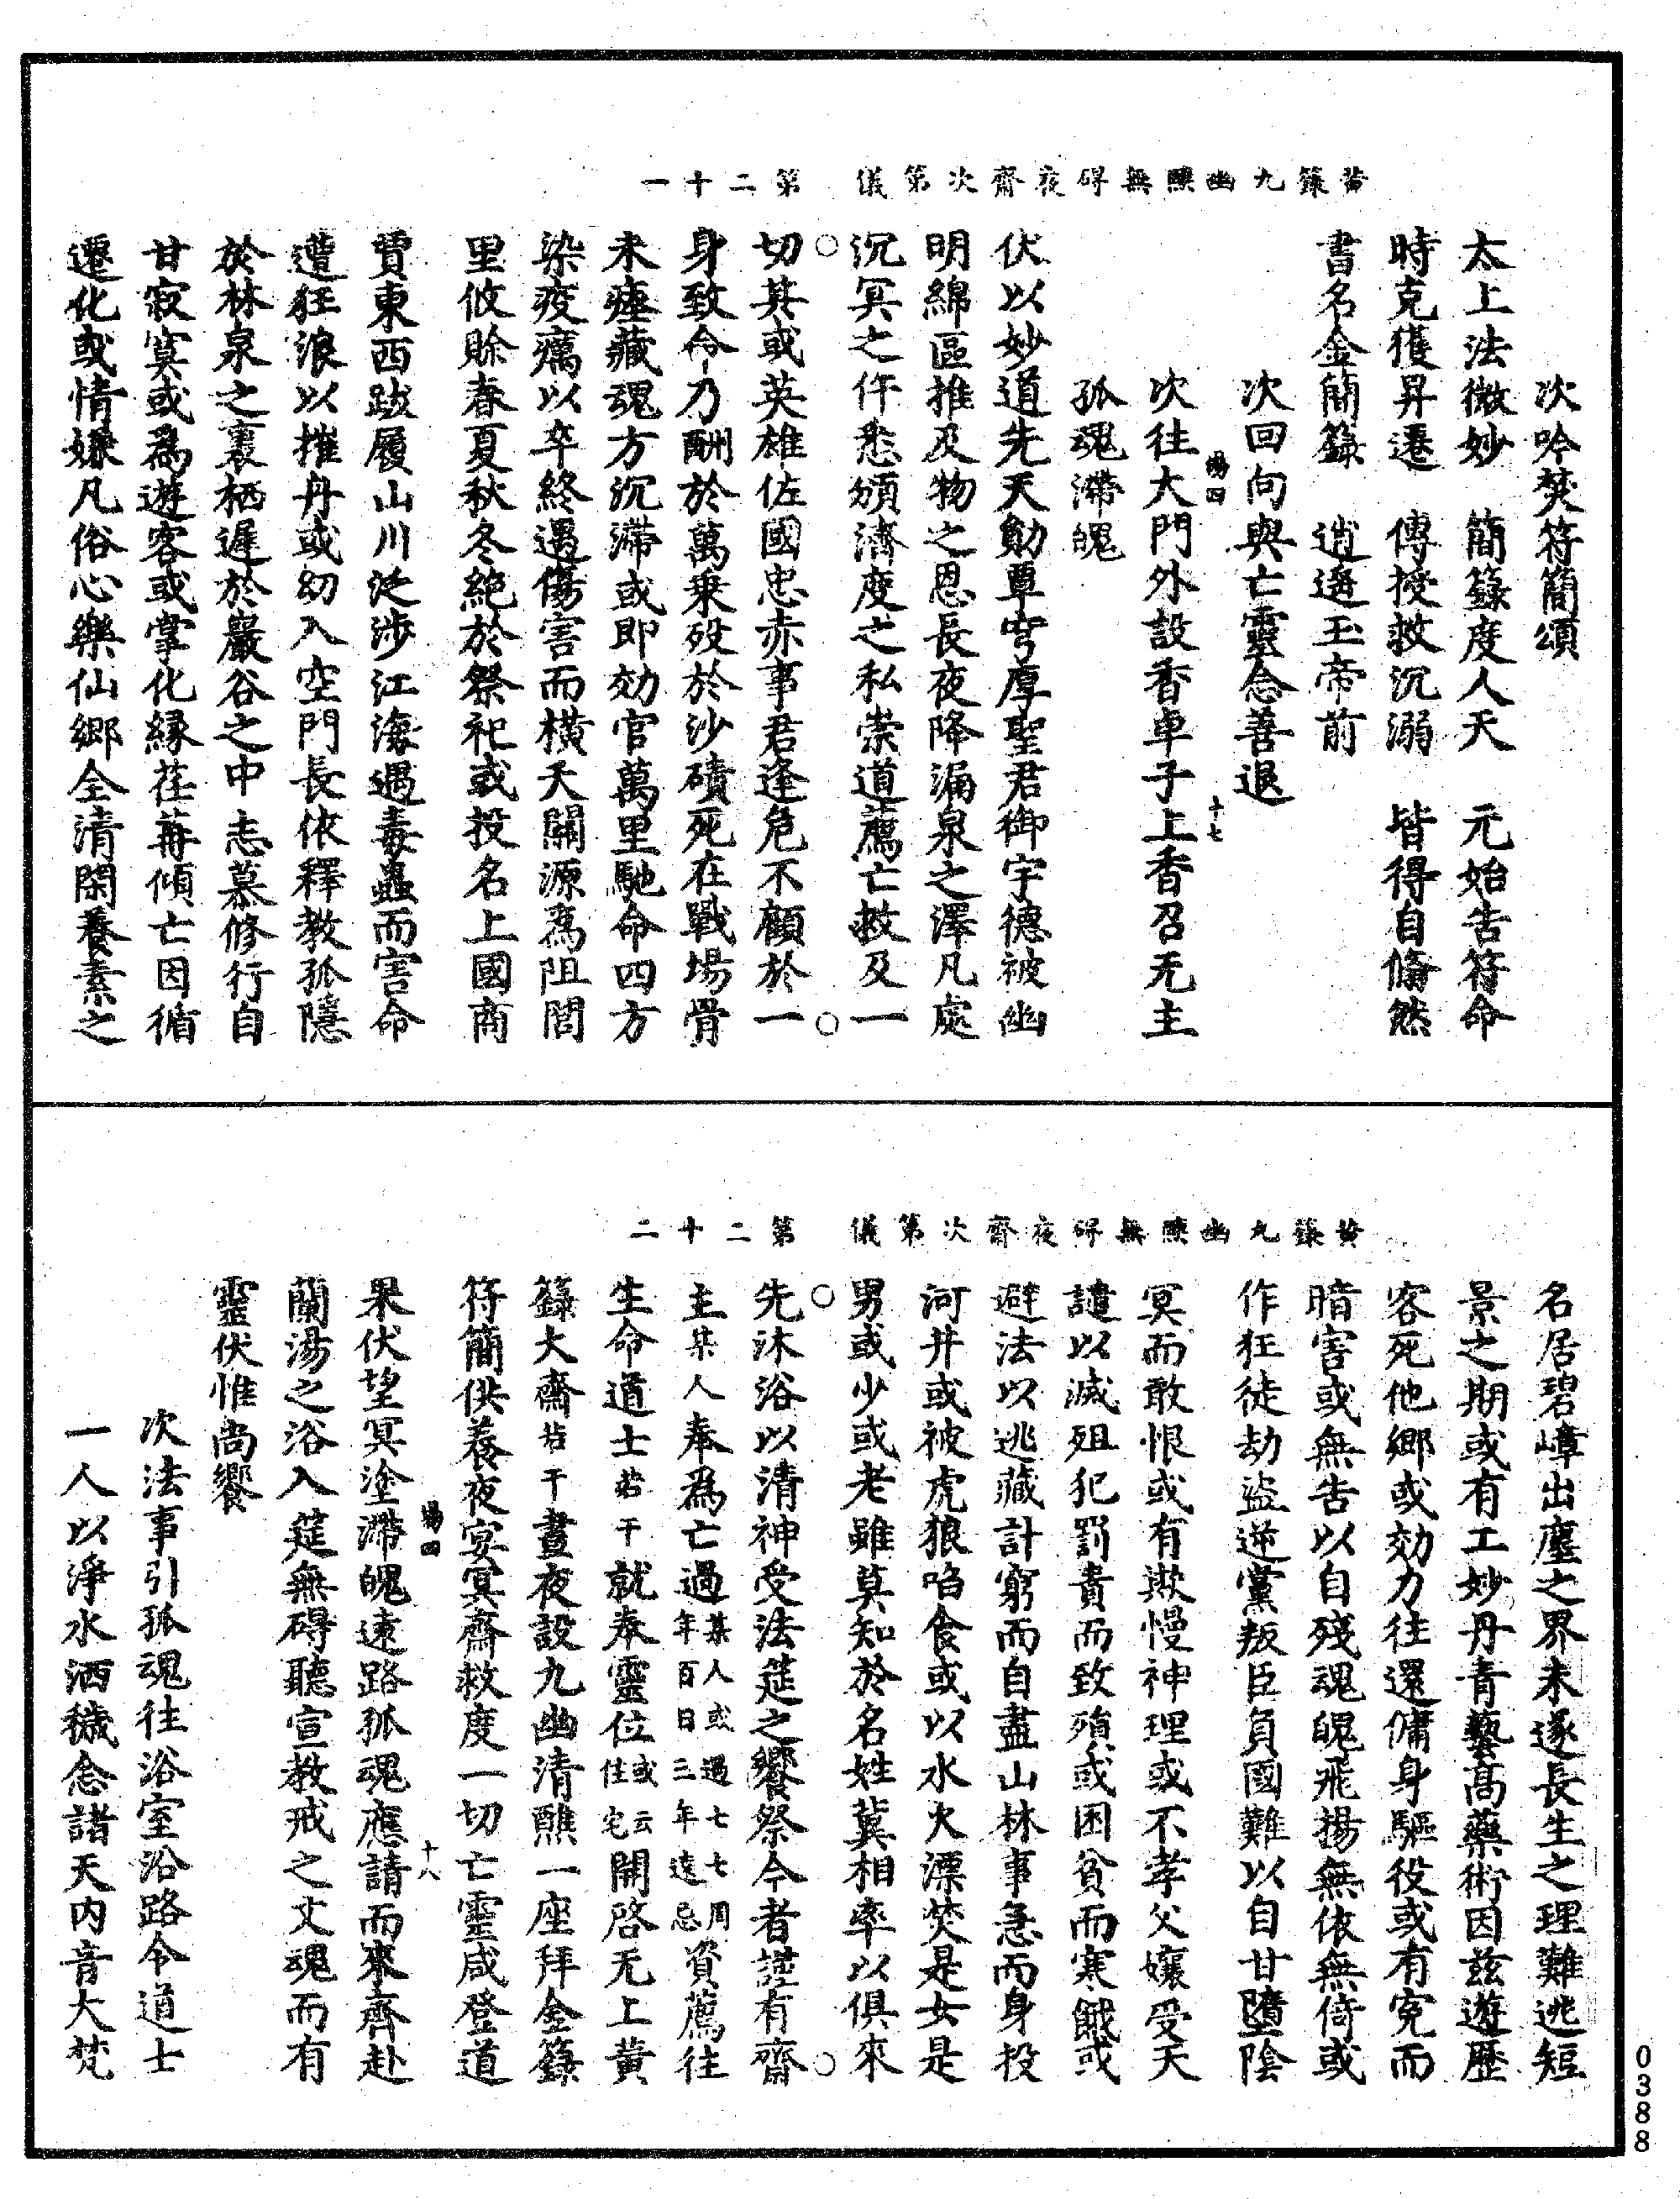 黃籙九幽醮無碍夜齋次第儀　第二十一
次吟焚符簡頌
太上法微妙　簡籙度人天　元始告符命
時克獲昇遷　傳授救沉溺　皆得自翛然
書名金簡籙　逍遙玉帝前
次回向與亡靈念善退
塲四　十七
次往大門外設香卓子上香召无主
孤魂滯魄
伏以妙道先天勛覃穹厚聖君御宇德被幽
明綿區推及物之恩長夜降漏泉之澤凡處
沉冥之仵悉頒濟度之私崇道薦亡救及一
切其或英雄佐國忠赤事君逢危不顧於一
身致命乃酬於萬乗歿於沙磧死在戰場骨
未瘞藏魂方沉滯或即効官萬里馳命四方
染疫癘以卒終遇傷害而橫夭關源爲阻閭
里攸賒春夏秋冬絕於祭祀或投名上國商
賈東西跋履山川泛涉江海遇毒蟲而害命
遭狂浪以摧丹或幼入空門長依釋教孤隱
於林泉之裏栖遲於巖谷之中志慕修行自
甘寂寞或爲遊客或掌化緣荏苒傾亡因循
遷化或情嫌凡俗心樂仙鄉全清閑養素之
黃籙九幽醮無碍夜齋次第儀　第二十二
名居碧嶂出塵之界未遂長生之理難逃短
景之期或有工妙丹青藝高藥術因兹遊歷
客死他鄉或効力往還傭身驅役或有寃而
暗害或無告以自殘魂魄飛揚無依無倚或
作狂徒劫盜逆黨叛臣負國難以自甘墮陰
冥而敢恨或有欺慢神理或不孝父孃受天
譴以滅殂犯罰責而致殞或困貧而寒餓或
避法以逃藏計窮而自盡山林事急而身投
河井或被虎狼啗食或以水火漂焚是女是
男或少或老雖莫知於名姓冀相率以俱來
先沐浴以清神受法筵之饗祭今者謹有齋
主某人奉爲亡過某人或過七七周年百日三年遠忌資薦往
生命道士若干就奉靈位或云住宅開啓无上黃
籙大齋若干晝夜設九幽清醮一座拜金籙
符簡供養夜宴冥齋救度一切亡靈咸登道
塲四　十八
果伏望冥塗滯魄遠路孤魂應請而來齊赴
蘭湯之浴入筵無碍聽宣教戒之文魂而有
靈伏惟尚饗
次法事引孤魂往浴室沿路令道士
一人以淨水洒穢念諸天內音大梵
0388